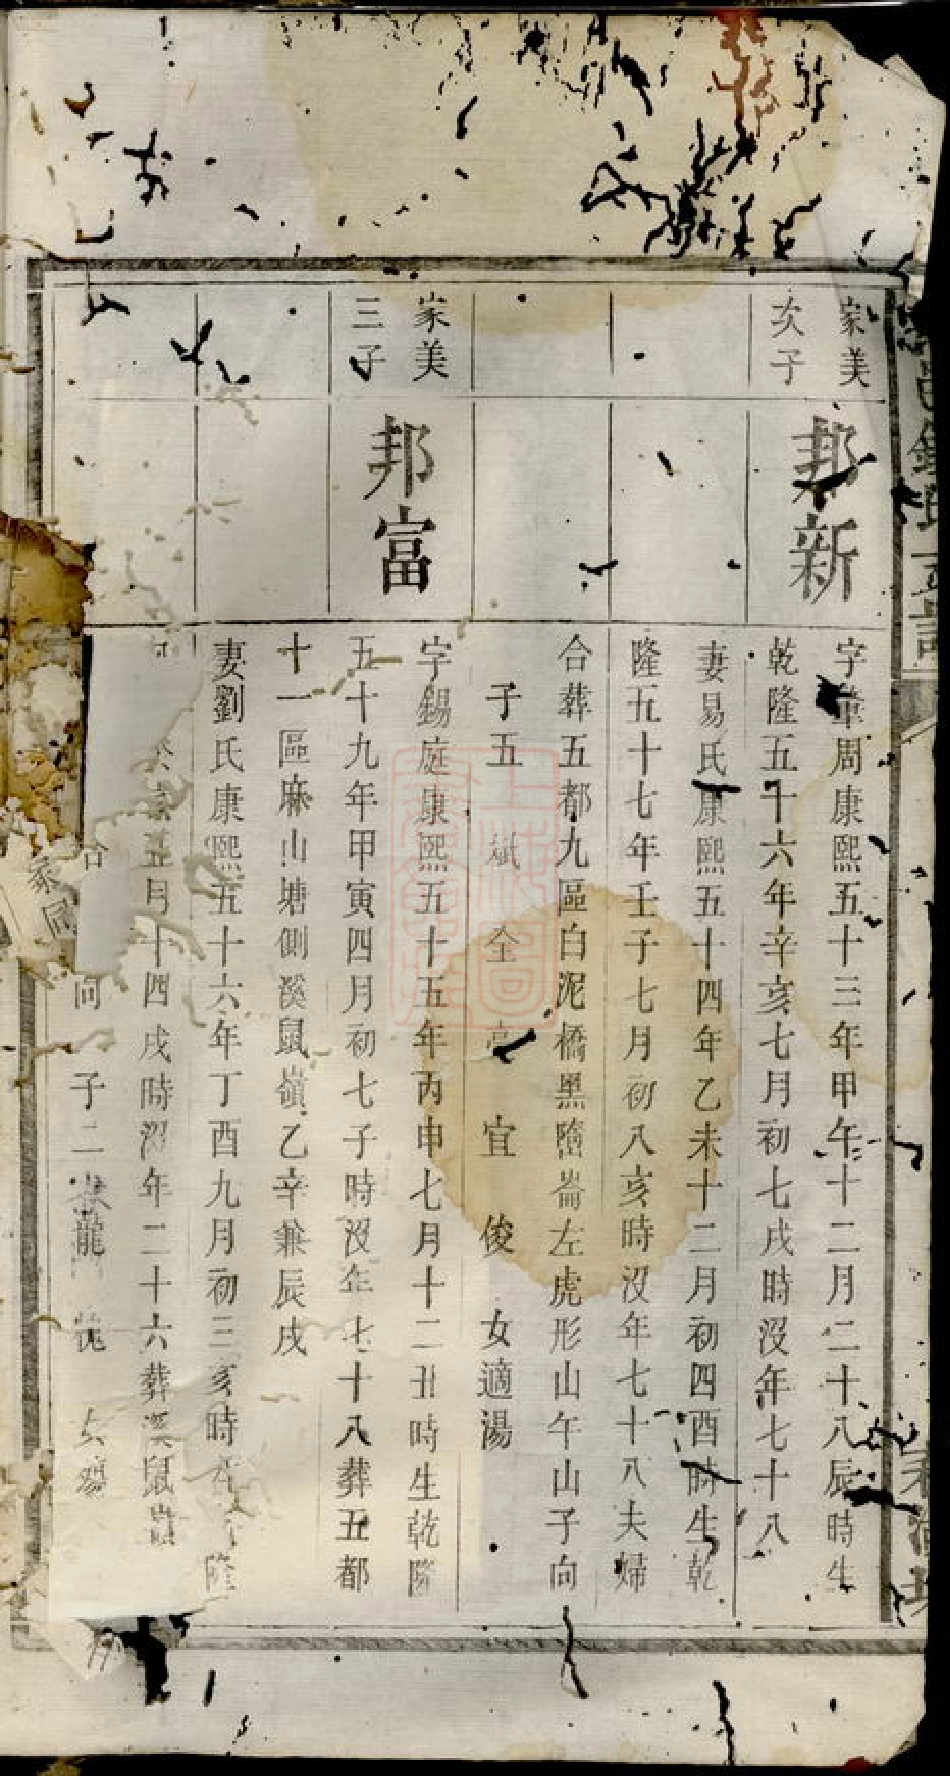 家美
次子
邦新
字 周康熙五十三年甲午十二月二十八辰時生
乾隆五十六年辛亥七月初七戌時沒年七十八
妻易氏康熙五十四年乙未十二月初四酉時生乾
隆五十七年壬子七月初八亥時沒年七十八夫婦
合葬五都九區白泥橋黑 崙左虎形山午山子向
子五 斌 全 宜 俊 女適湯
家美
三子
邦富
字錫庭康熙五十五年丙申七月十二丑時生乾隆
五十九年甲寅四月初七子時沒年七十八葬五都
十一區麻山塘側溪鼠嶺乙辛兼辰戌
妻劉氏康熙五十六年丁酉九月初三亥時 隆
五月十四戌時沒年二十六葬溪鼠
向 子二 龍 女殤